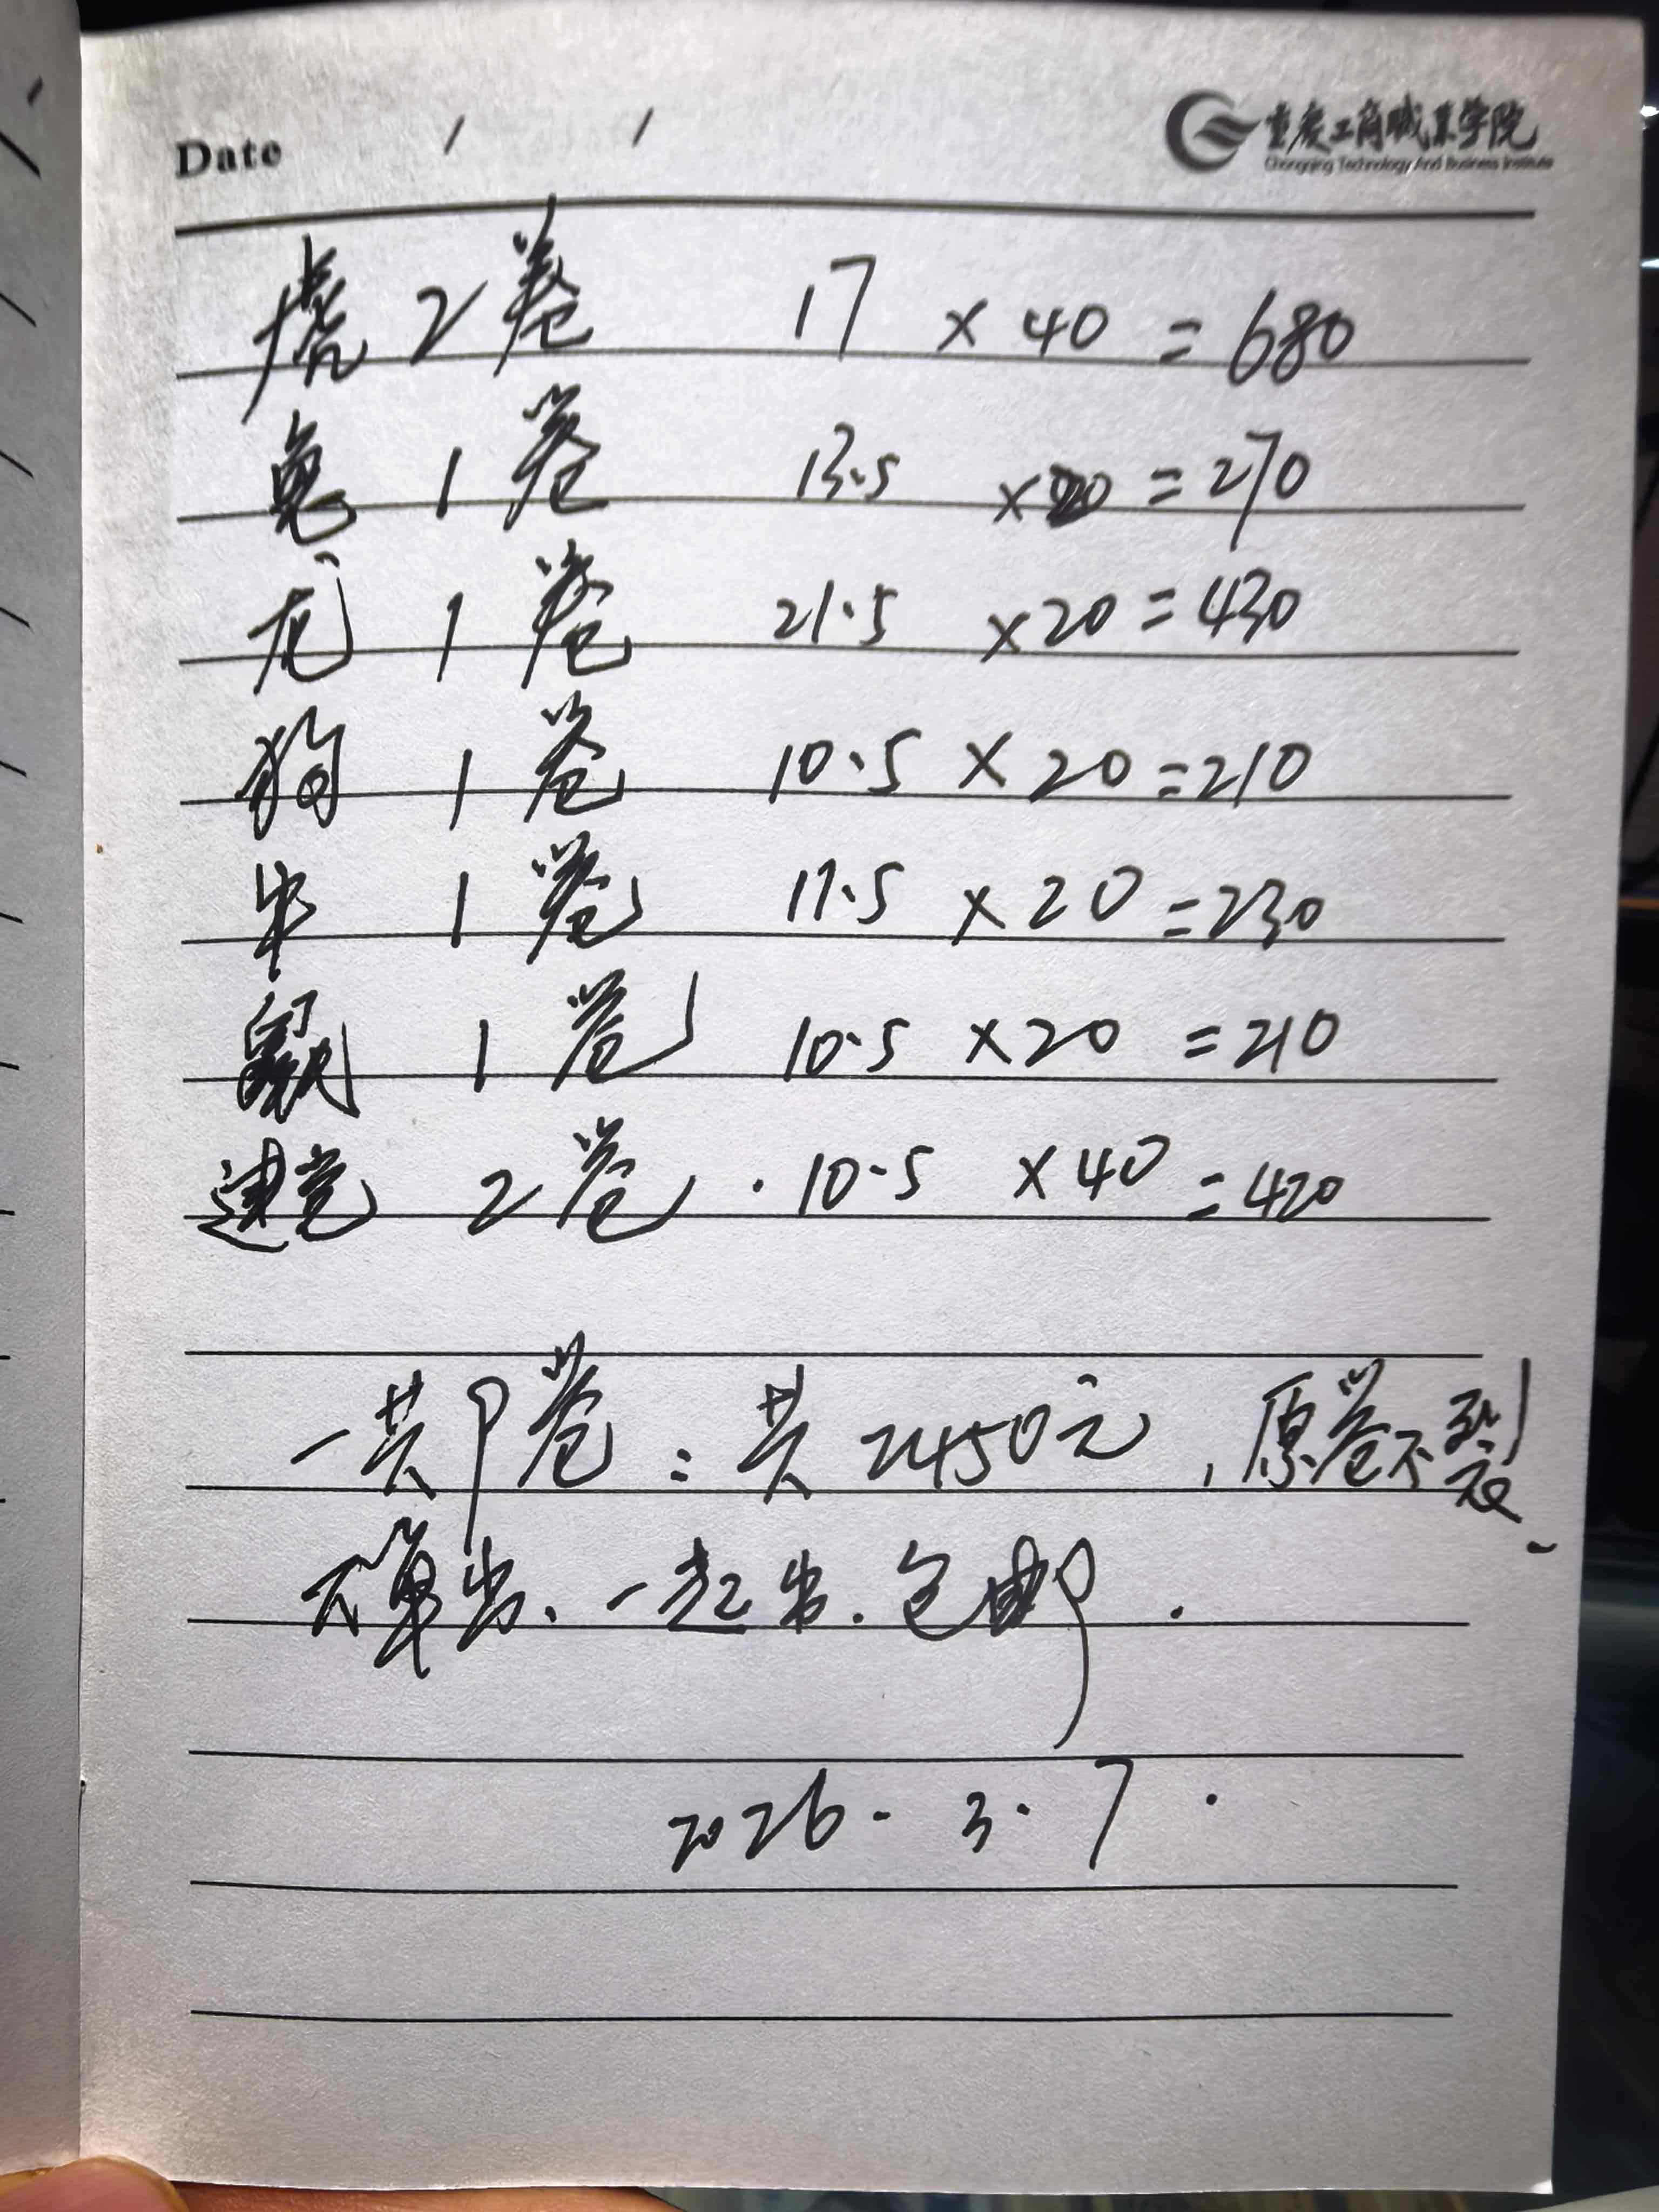 Date / / 重庆工商职业学院
Chongqing Technology And Business Institute
虎 2 卷 17 × 40 = 680
兔 1 卷 13.5 ×20 = 270
龙 1 卷 21.5 ×20 = 430
狗 1 卷 10.5 × 20 = 210
牛 1 卷 11.5 × 20 = 230
鼠 1 卷 10.5 ×20 = 210
建党 2 卷 . 10.5 ×40 = 420
一共 9 卷 : 共 2450元 , 原卷不裂
不单出、一起出. 包邮 .
2026 . 3 . 7 .